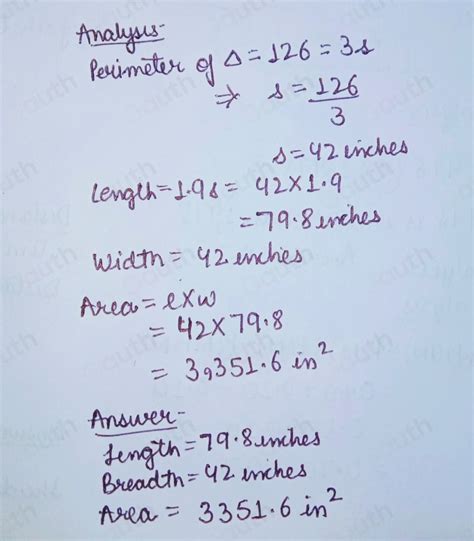 Analysis-
Perimeter of Δ = 126 = 3s
⇒ s = 126/3
s = 42 inches
Length = 1.9s = 42 × 1.9
= 79.8 inches
Width = 42 inches
Area = l×w
= 42 × 79.8
= 3,351.6 in²
Answer-
Length = 79.8 inches
Breadth = 42 inches
Area = 3351.6 in²